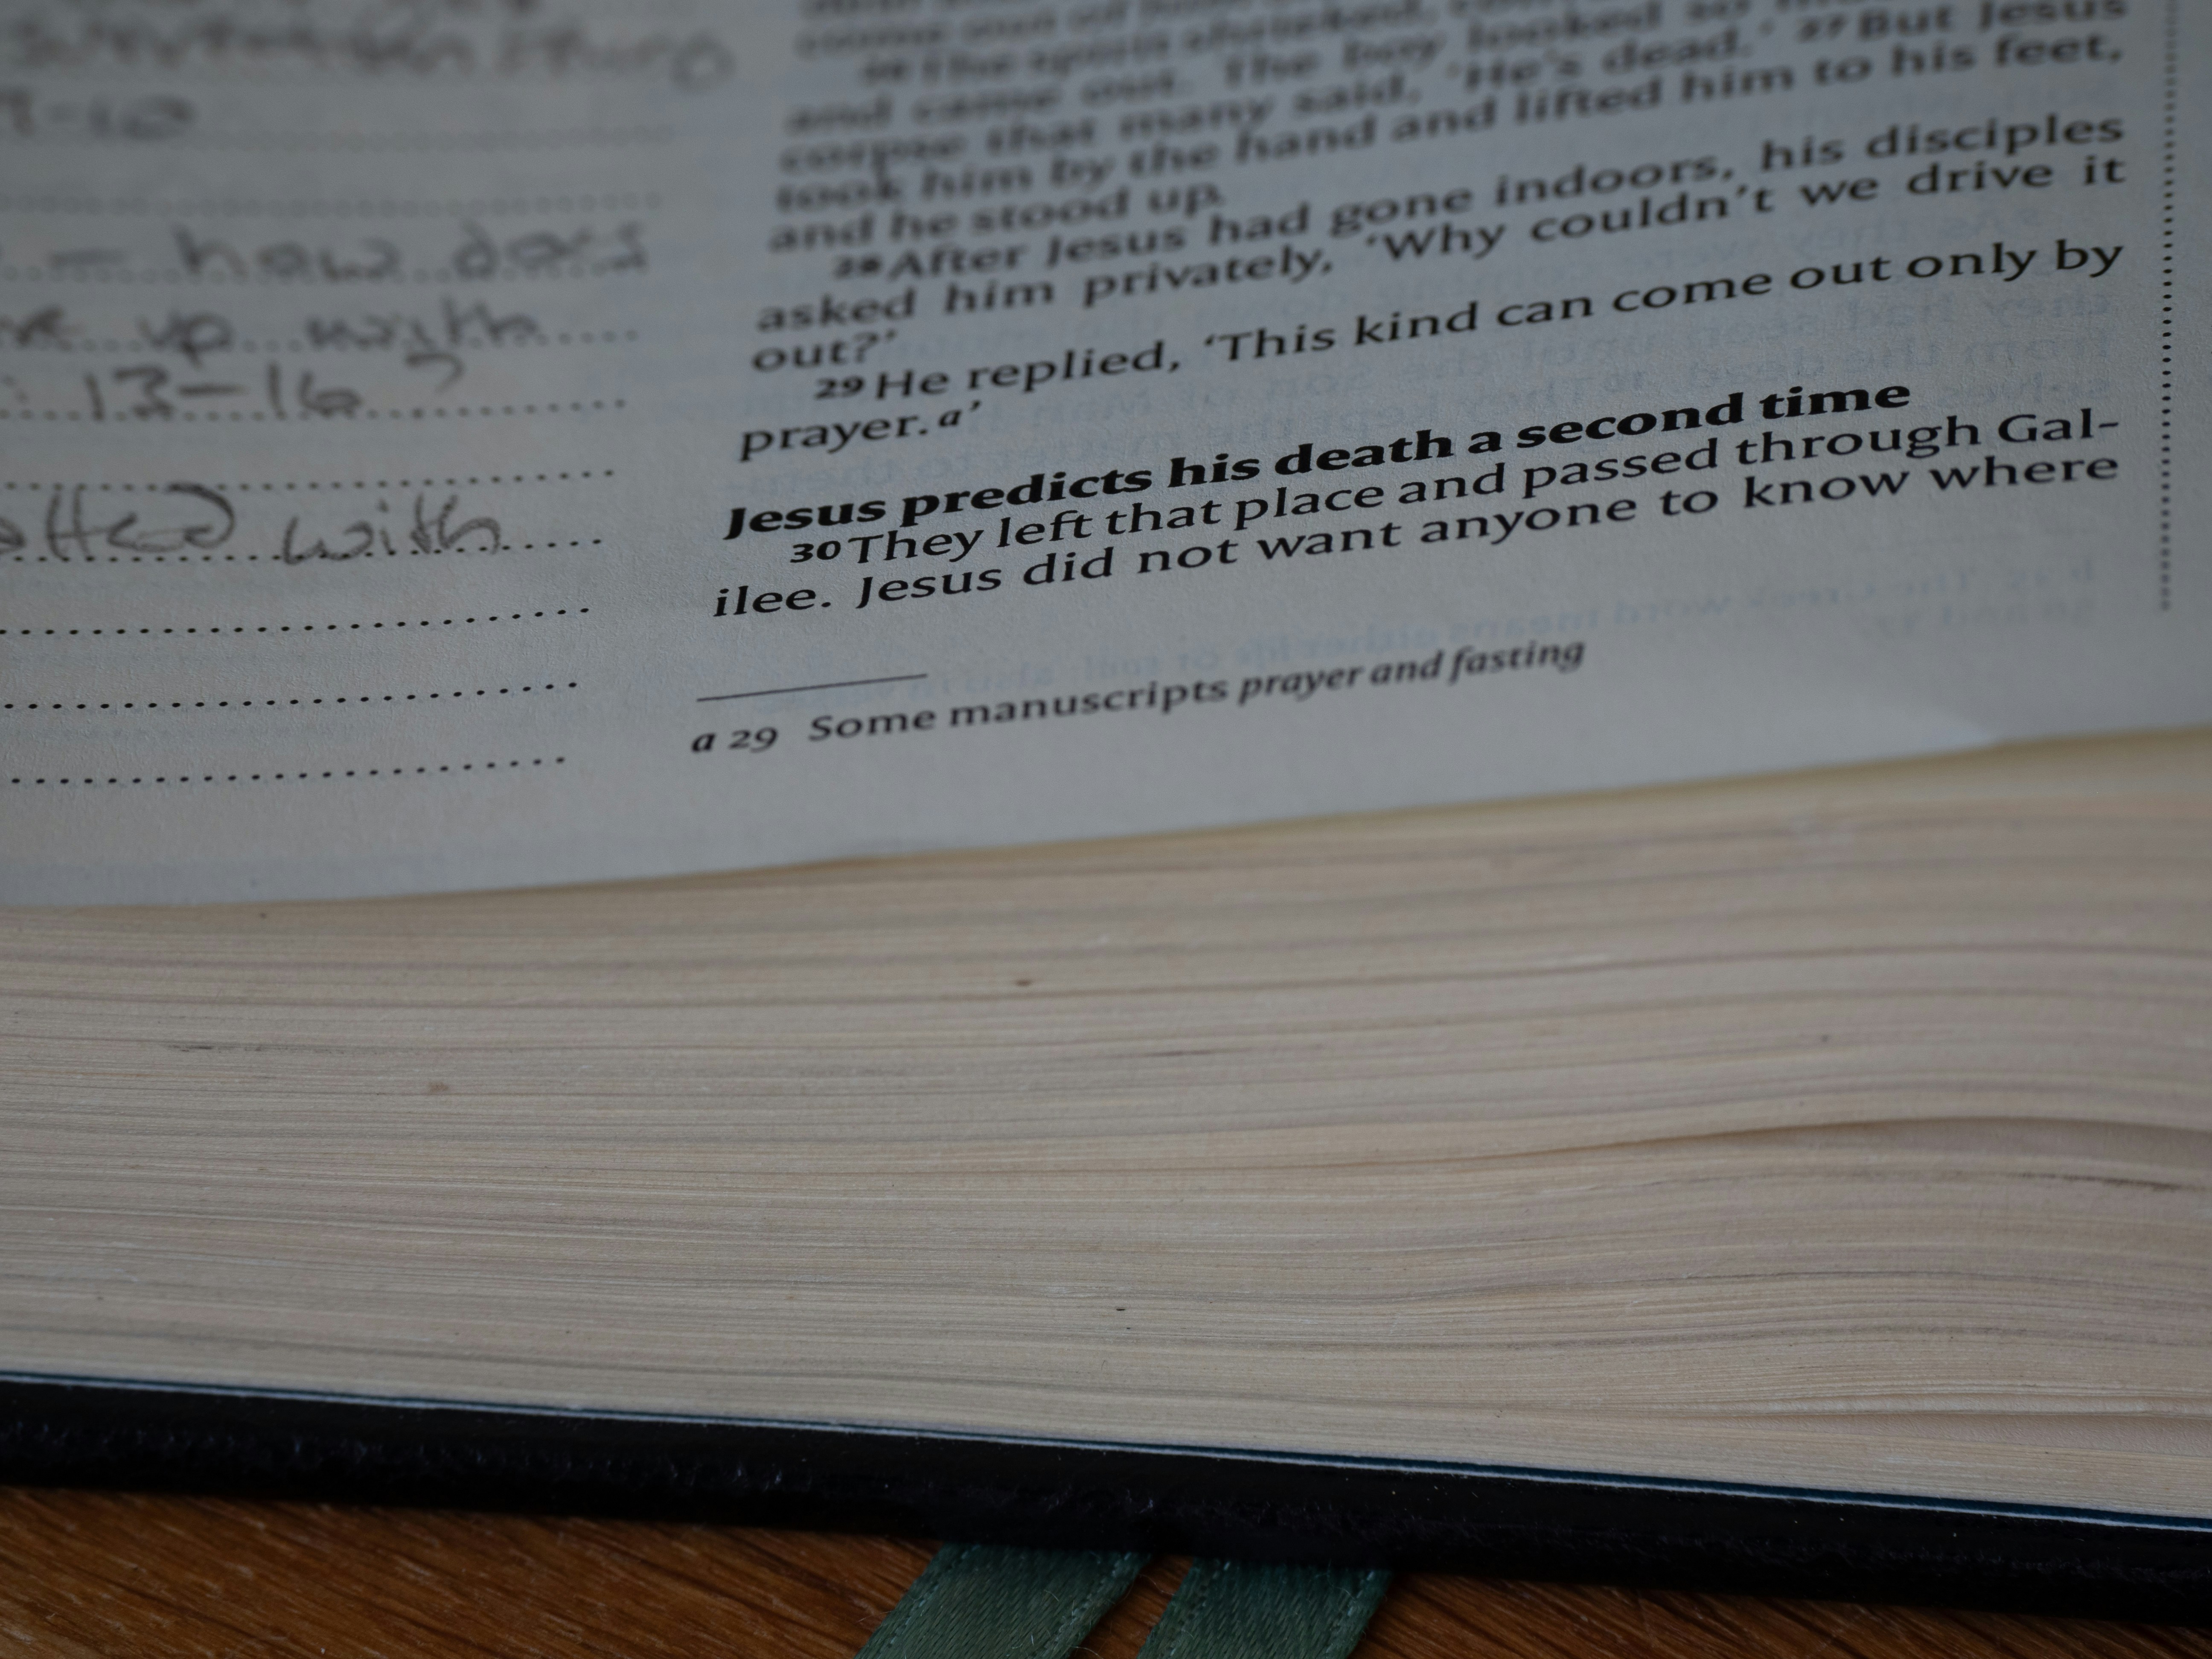 7-10
– how does
up with
: 13–16?
with
26 The spirit shrieked,
and came out. The boy looked so
corpse that many said, 'He's dead.' 27 But Jesus
took him by the hand and lifted him to his feet,
and he stood up.
28 After Jesus had gone indoors, his disciples
asked him privately, 'Why couldn't we drive it
out?'
29 He replied, 'This kind can come out only by
prayer.a'
Jesus predicts his death a second time
30 They left that place and passed through Gal-
ilee. Jesus did not want anyone to know where
a 29 Some manuscripts prayer and fasting